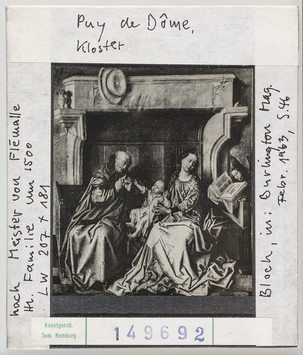 Puy de Dôme,
Kloster
nach Meister von Flémalle
Hl. Familie um 1500
LW 207 x 181
Bloch, in: Burlington Mag.
Febr. 1963, S. 46
Kunstgesch.
Sem. Hamburg
149692